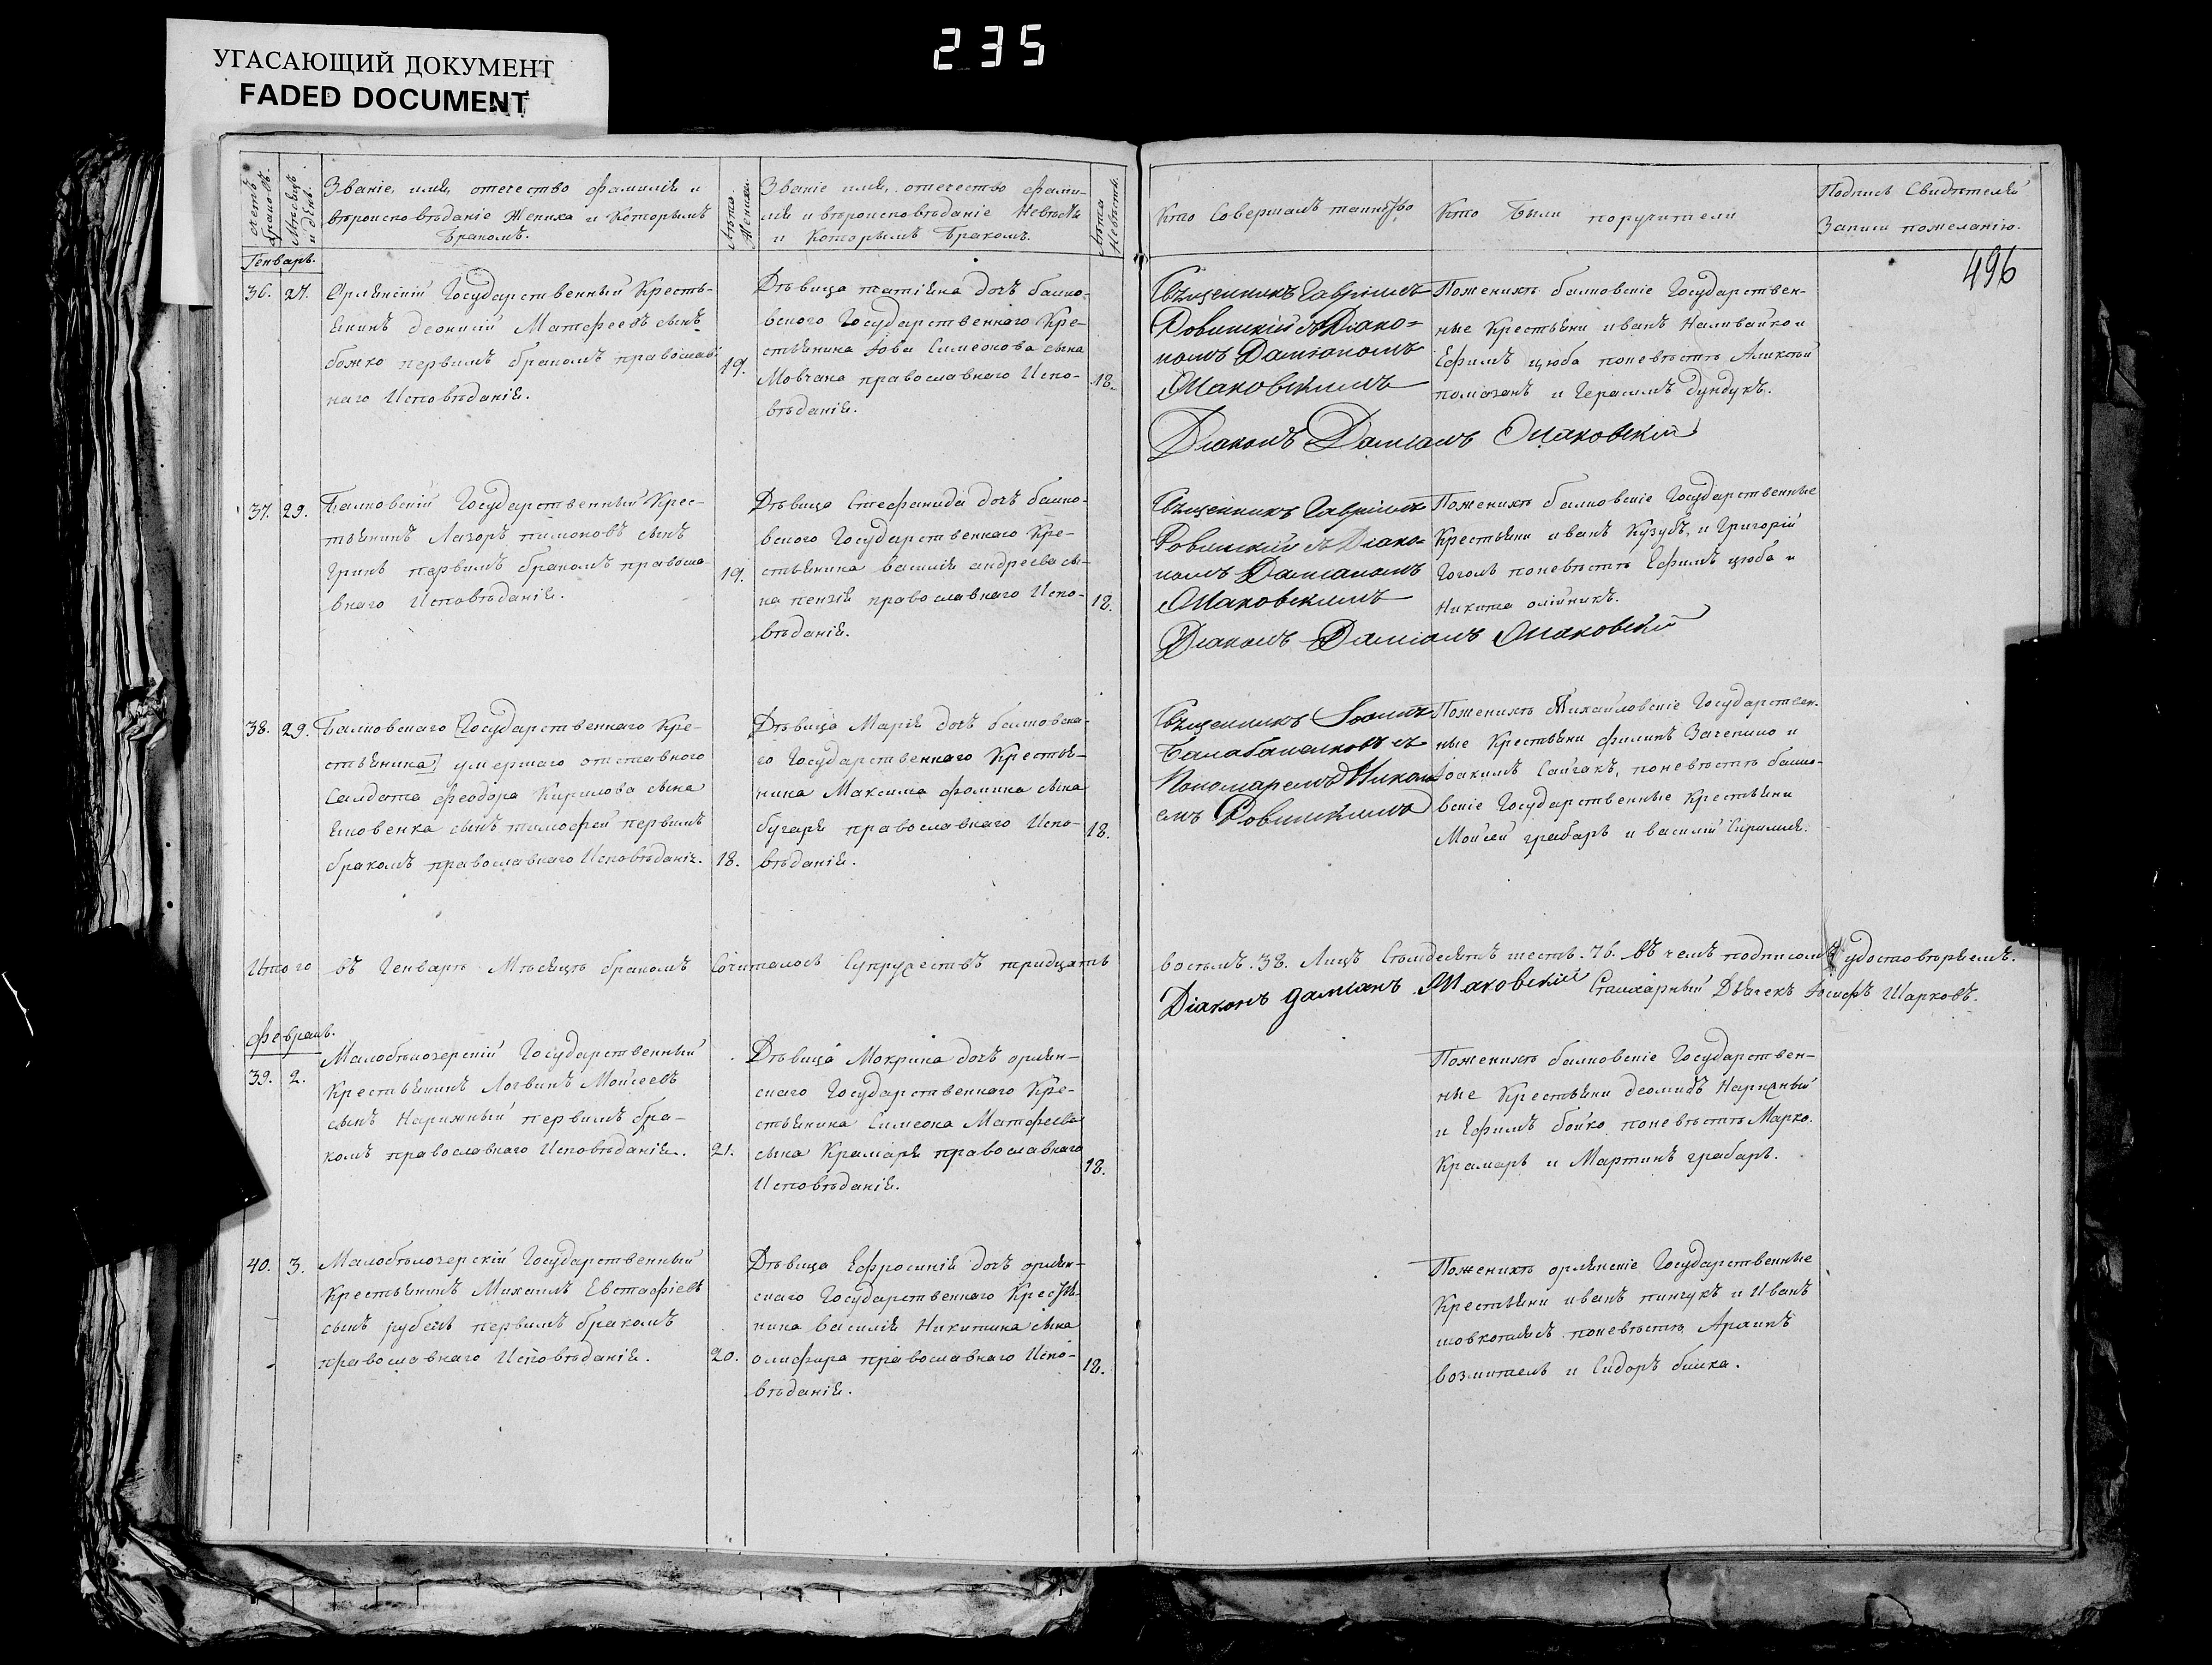 УГАСАЮЩИЙ ДОКУМЕНТ
FADED DOCUMENT
235
496
Счетъ браковъ.
Мѣсяцъ и день.
Званіе, имя, отечество фамилія и
вѣроисповѣданіе Жениха и Которымъ
бракомъ.
Лѣта Жениха.
Званіе имя, отечество фами-
лія и вѣроисповѣданіе Невѣсты
и Которымъ бракомъ.
Лѣта Невѣсты.
Кто Совершалъ таинство
Кто были поручители
Подпись Свидѣтелей
Записи пожеланію.
Генварь.
36. 27.
Орлянскій Государственный Кресть-
янинъ деонисій Матфеевъ сынъ
божко первымъ бракомъ православ
наго Исповѣданія.
19.
Дѣвица татіяна дочь балко-
вского Государственнаго Кре-
стьянина Іова Симеонова сына
Мовчана православнаго Испо-
вѣданія.
18.
Священникъ Гавріилъ
Ровинскій съ Діако-
номъ Даміаномъ
Маковскимъ
Діаконъ Даміанъ Маковскій
Поженихѣ балковскіе Государствен-
ные Крестьяни иванъ Наливайко и
Ефимъ цюба поневѣстѣ Аликсѣй
помазанъ и Герасимъ дундукъ.
37. 29.
Балковскій Государственный Крес-
тьянинъ Лазорь пимоновъ сынъ
Гринь первымъ бракомъ правосла
внаго Исповѣданія.
19.
Дѣвица Стефанида дочь балко-
вского Государственнаго Кре-
стьянина василія андреева сы-
на пензія православнаго Испо-
вѣданія.
18.
Священникъ Гавріилъ
Ровинскій съ Діако-
номъ Даміаномъ
Маковскимъ
Діаконъ Даміанъ Маковскій
Поженихѣ балковскіе Государственные
Крестьяни иванъ Кузубъ, и Григорій
Гоголь поневѣстѣ Ефимъ цюба и
Никита олійникъ.
38. 29.
Балковскаго Государственнаго Кре-
стьянина умершаго отставного
Салдата феодора Кирилова сына
сынъ тимофей первымъ
бракомъ православнаго Исповѣданія.
18.
Дѣвица Марія дочь балковска-
го Государственнаго Крестья-
нина Максима фомина сына
бугаря православнаго Испо-
вѣданія.
18.
Священникъ Іоаннъ
съ
Пономаремъ Никола
емъ Ровинскимъ
Поженихѣ Михайловскіе Государствен-
ные Крестьяни филипъ Зачепило и
Іоакимъ Сайгакъ, поневѣстѣ балко-
вскіе Государственные Крестьяни
Моисей грабарь и василій
Итого въ Генварѣ Мѣсяцѣ бракомъ Сочиталось Супружествъ тридцать
восемь .38. Лицъ Семдесятъ шесть .76. въ чемъ подписомъ удостовѣряемъ.
Діаконъ даміанъ Маковскій Стихарный Дьячекъ Іосифъ Шарковъ.
февраль.
39. 2.
Малобѣлозерскій Государственный
Крестьянинъ Логвинъ Моисеевъ
сынъ Нарижный первымъ бра-
комъ православнаго Исповѣданія.
21.
Дѣвица Мокрина дочь орлян-
скаго Государственнаго Кре-
стьянина Симеона Матфеева
сына Крамаря православнаго
Исповѣданія.
18.
Поженихѣ балковскіе Государствен-
ные Крестьяни деомидъ Нарижный
и Ефимъ бойко поневѣстѣ Марко.
Крамарь и Мартинъ грабарь.
40. 3.
Малобѣлозерскій Государственный
Крестьянинъ Михаилъ Евстафіевъ
сынъ рубель первымъ бракомъ
православнаго Исповѣданія.
20.
Дѣвица Ефросинія дочь орлян-
скаго Государственнаго Крестья-
нина василія Никитина сына
олифира православнаго Испо-
вѣданія.
18.
Поженихѣ орлянскіе Государственные
Крестьяни иванъ пинчукъ и Иванъ
поневѣстѣ
и Сидоръ